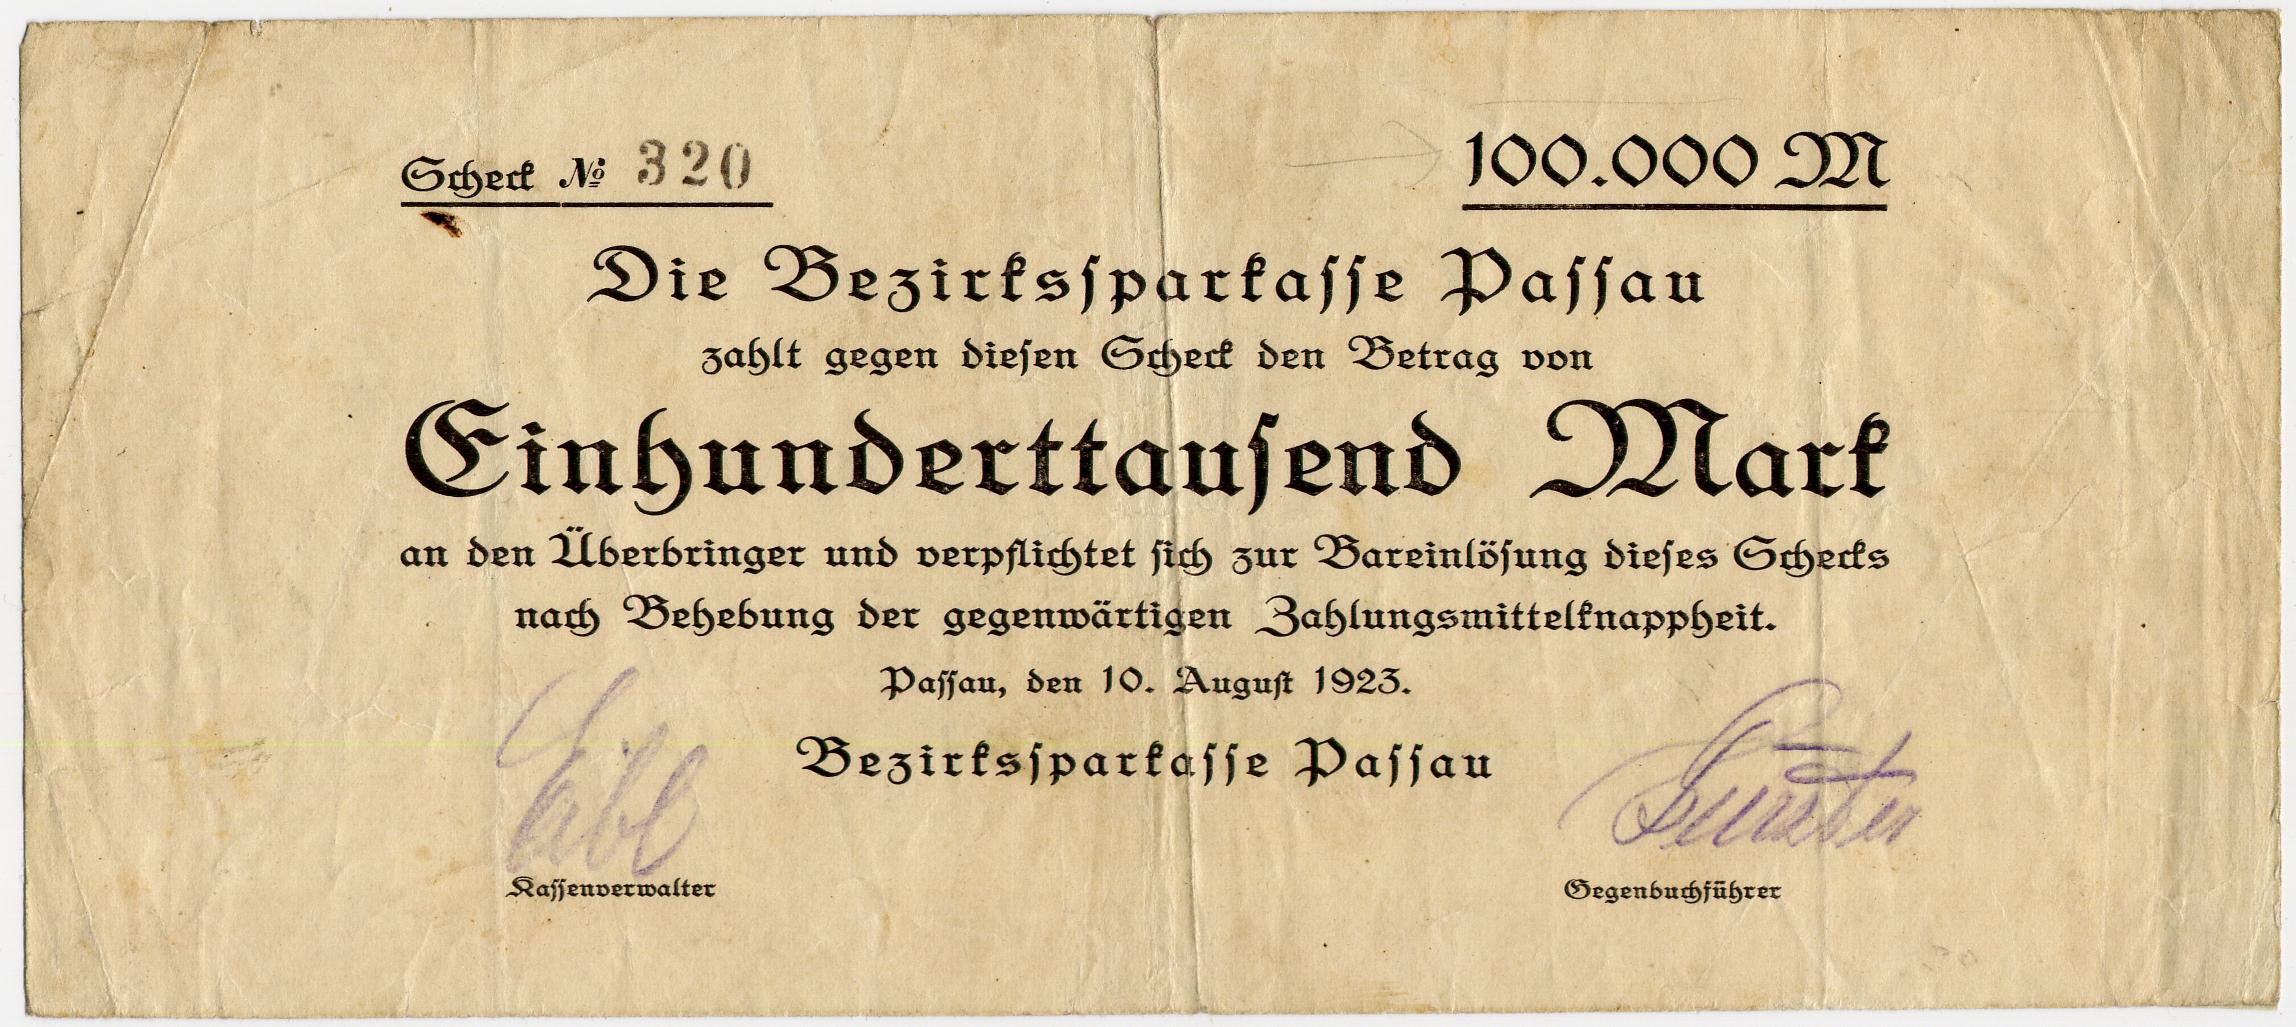 Scheck № 320
100.000 M
Die Bezirkssparkasse Passau
zahlt gegen diesen Scheck den Betrag von
Einhunderttausend Mark
an den Überbringer und verpflichtet sich zur Bareinlösung dieses Schecks
nach Behebung der gegenwärtigen Zahlungsmittelknappheit.
Passau, den 10. August 1923.
Bezirkssparkasse Passau
Eibl
Kassenverwalter
Gegenbuchführer